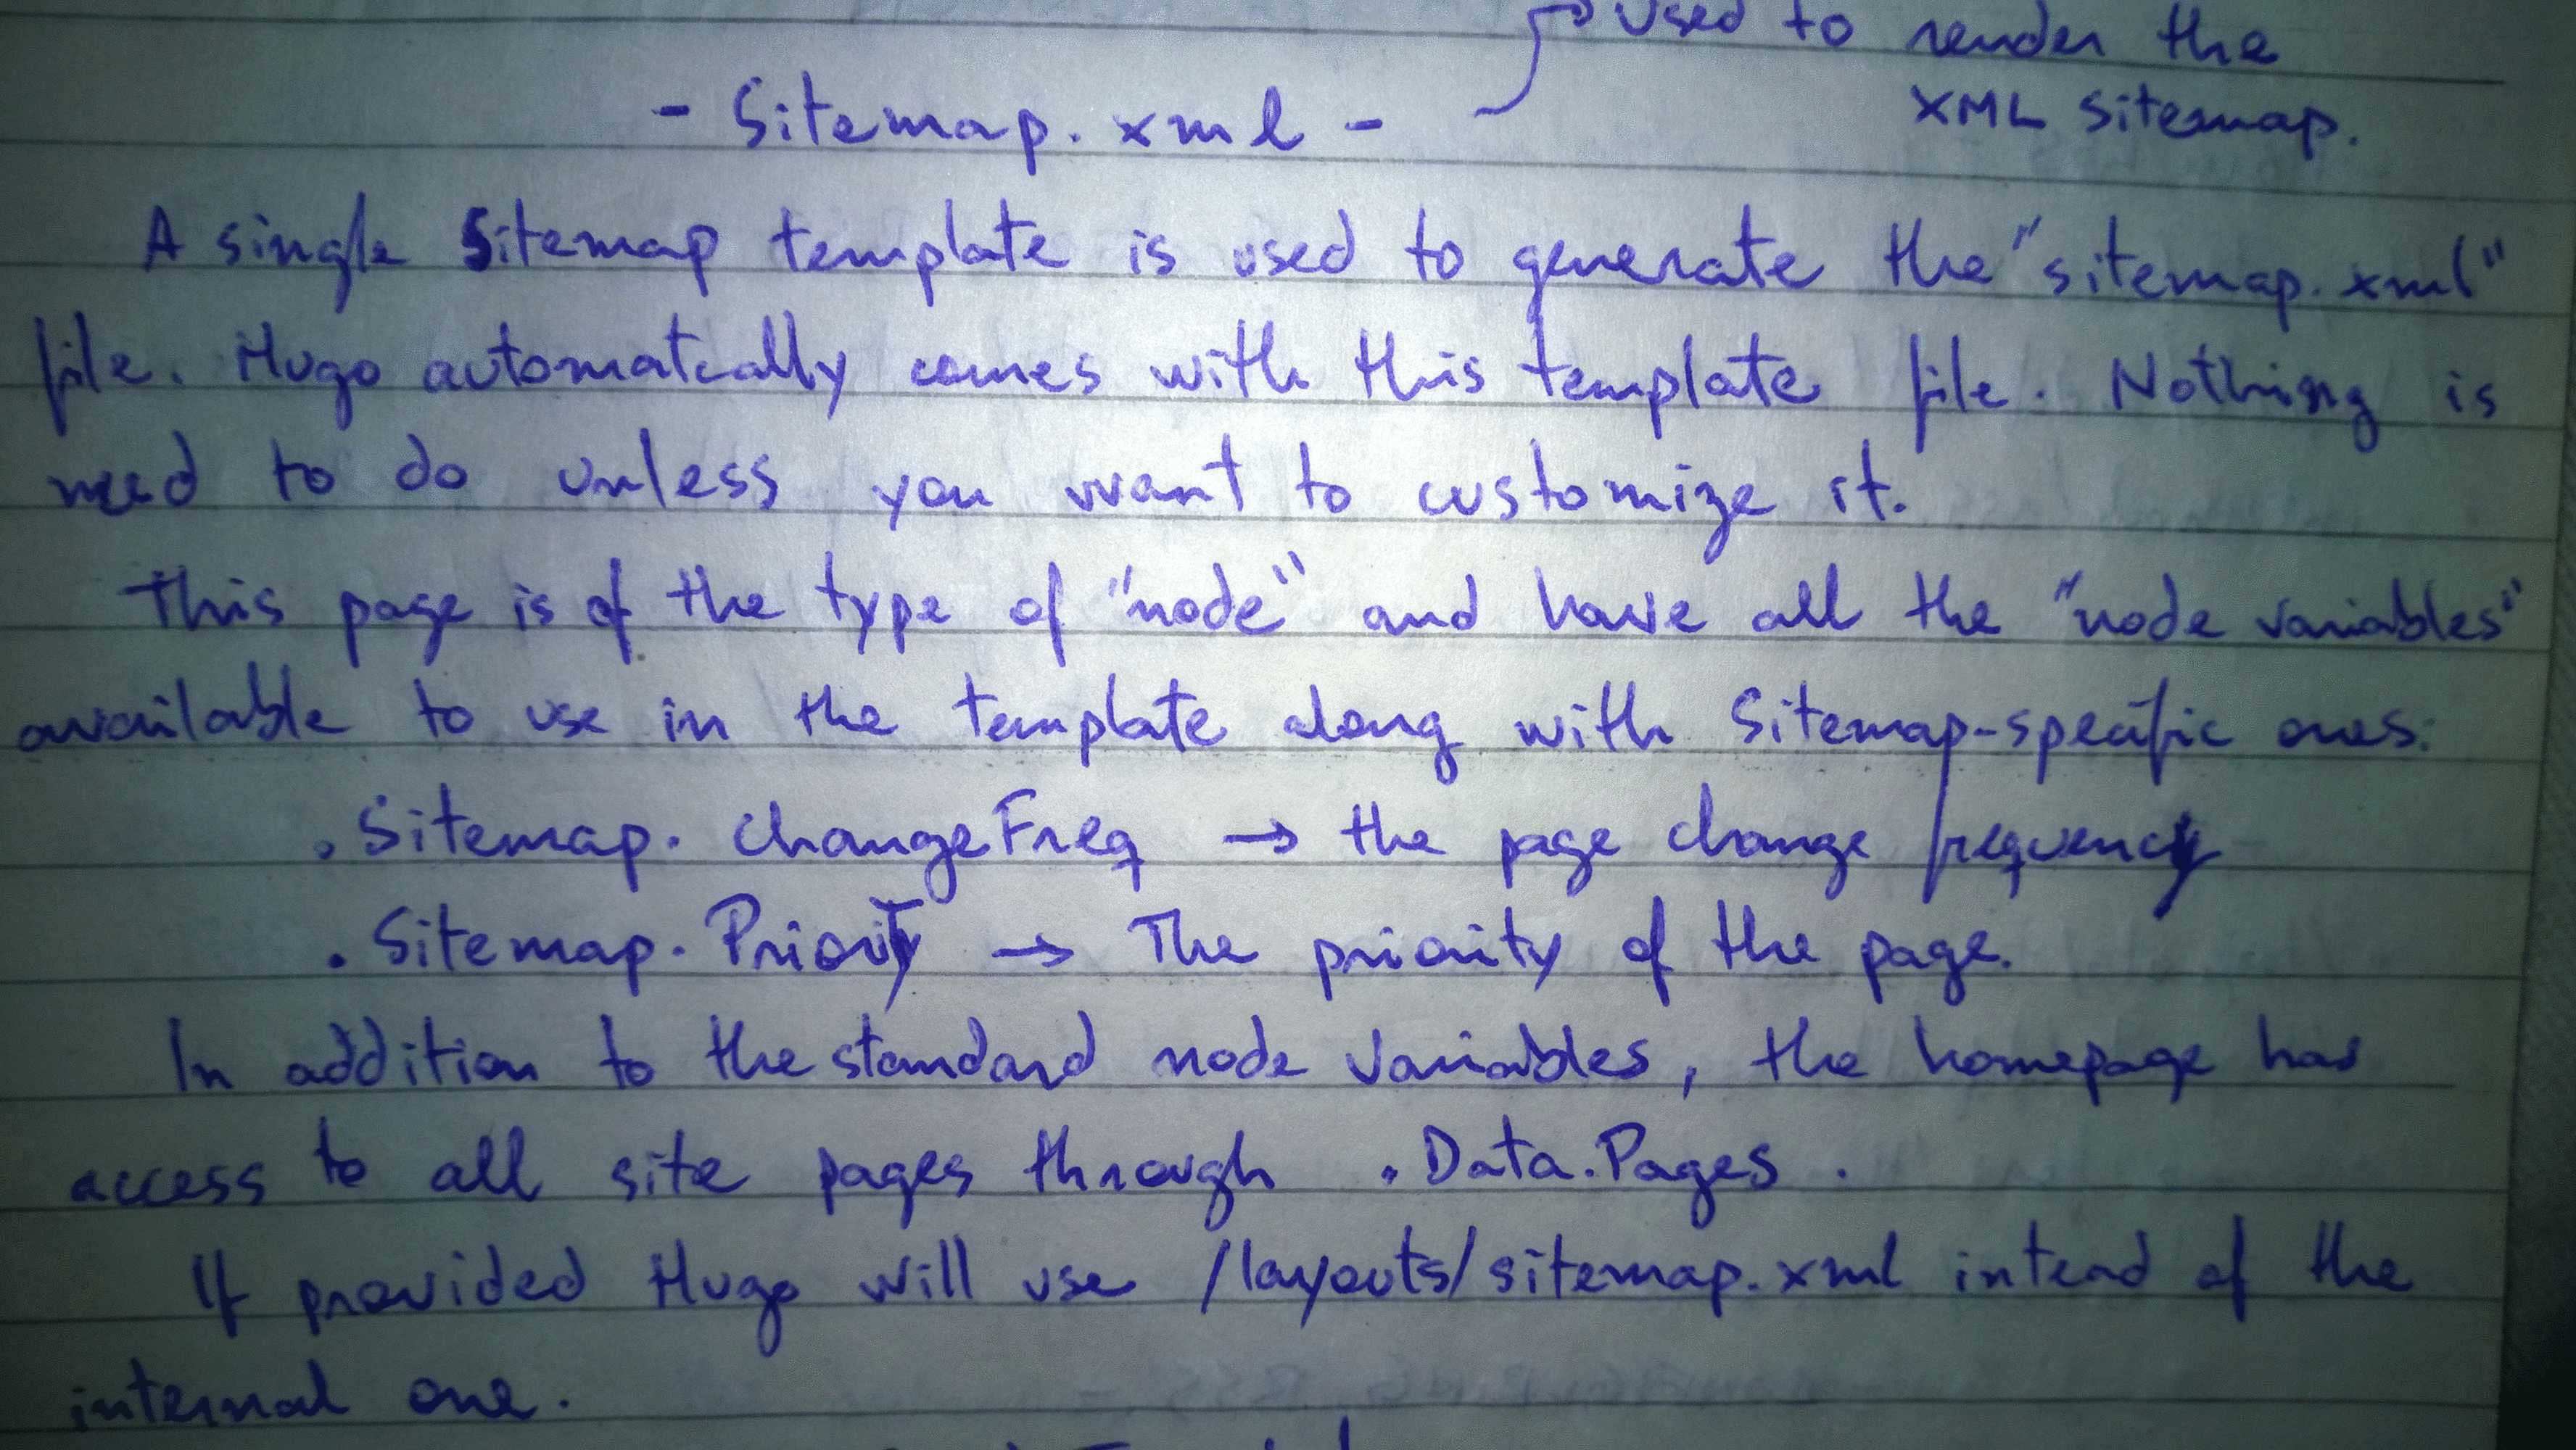 used to render the
- Sitemap.xml -
XML Sitemap.
A single Sitemap template is used to generate the "sitemap.xml"
file. Hugo automatcally comes with this template file. Nothing is
need to do unless you want to customize it.
This page is of the type of "node" and have all the "node variables"
available to use in the template along with Sitemap-specific ones:
.Sitemap.ChangeFreq → the page change frequency
.Sitemap.Priority → The priority of the page.
In addition to the standard node variables, the homepage has
access to all site pages through .Data.Pages .
If provided Hugo will use /layouts/sitemap.xml intead of the
internal one.